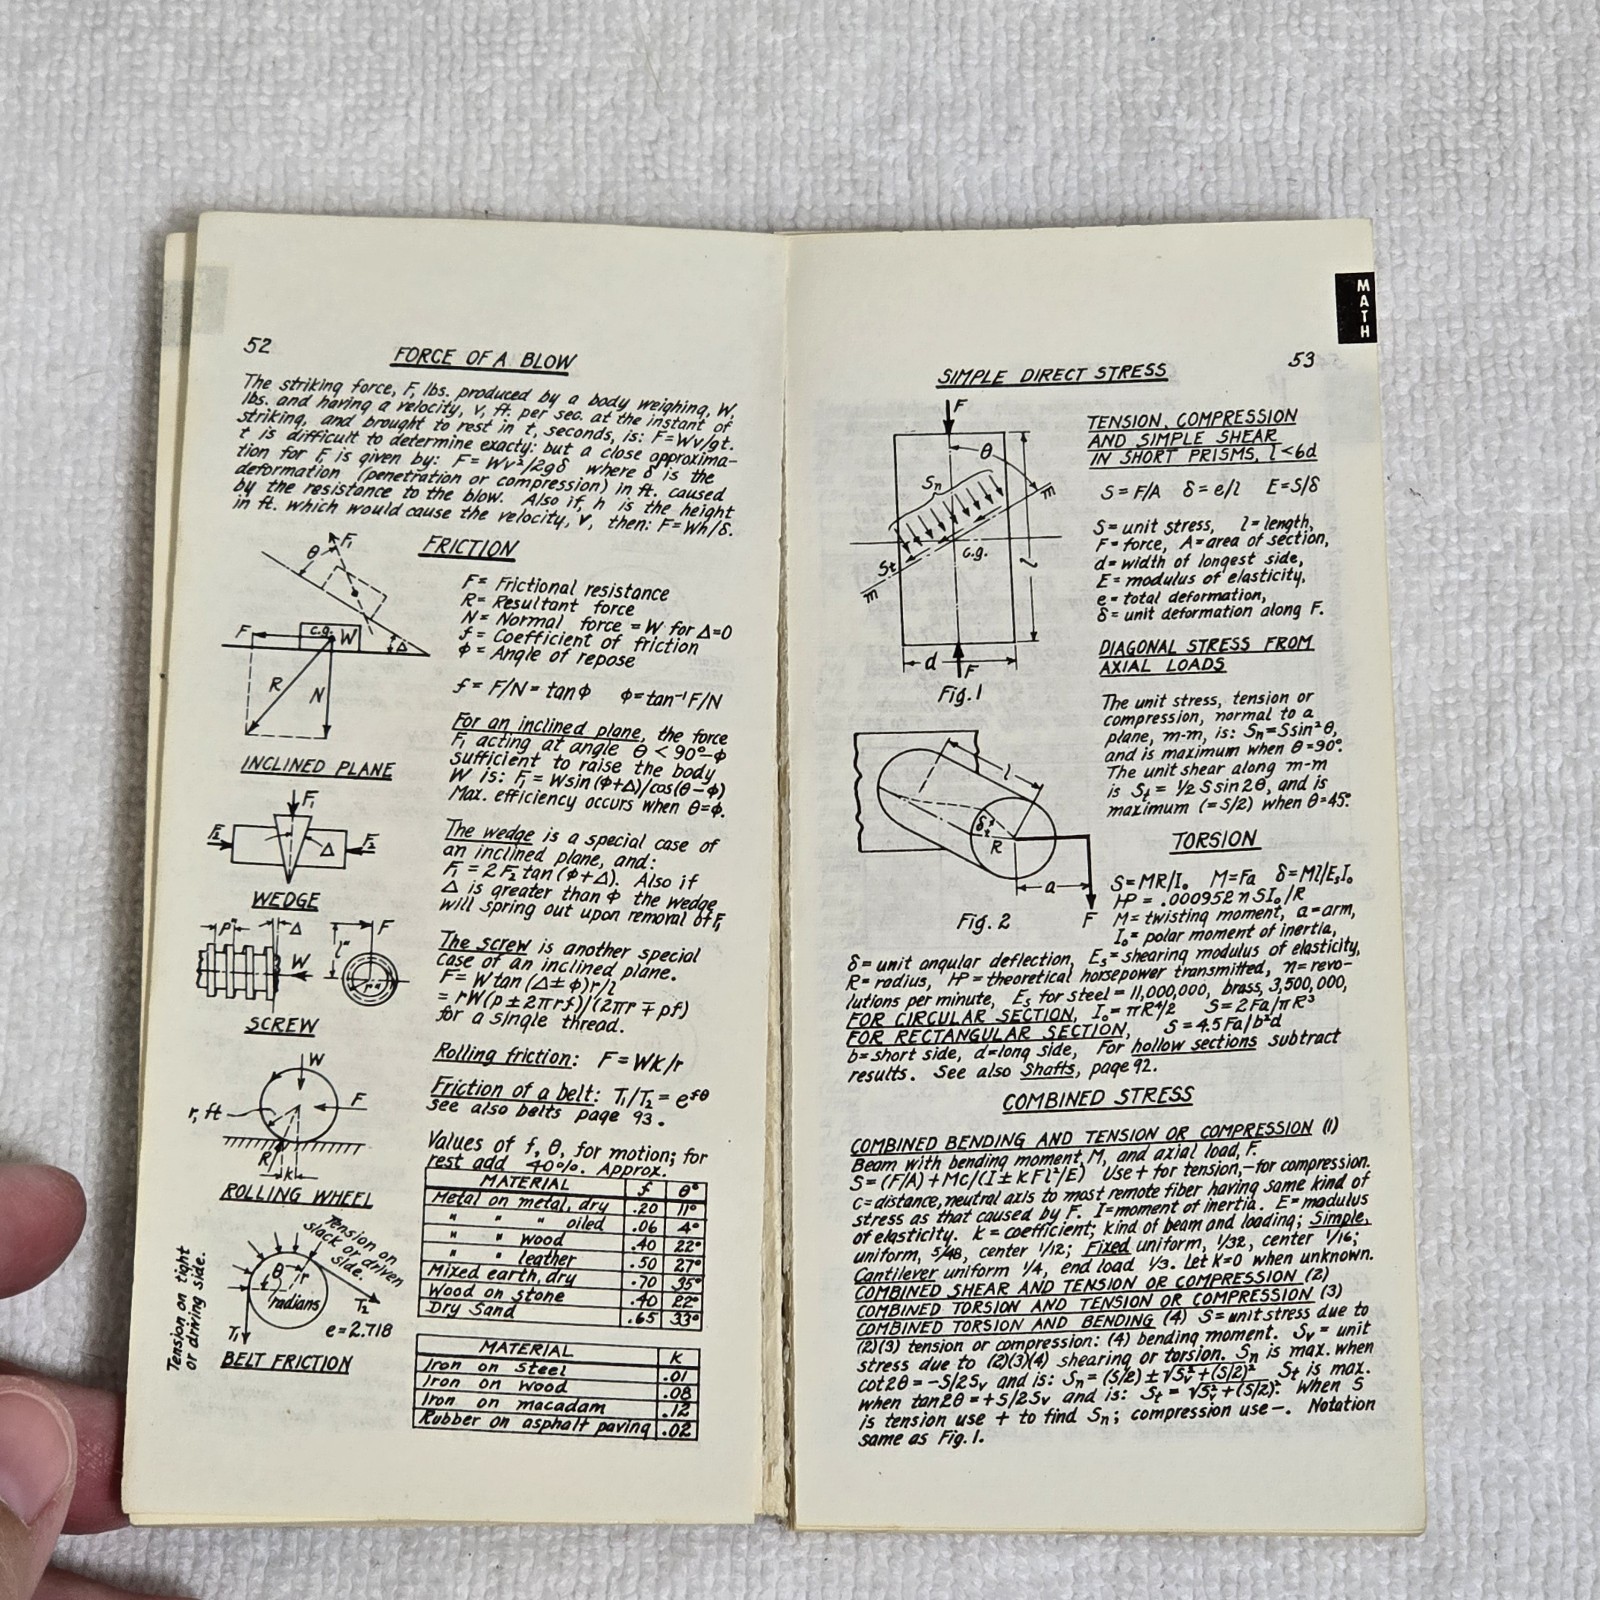 52
FORCE OF A BLOW
The striking force, F, lbs. produced by a body weighing, W,
lbs. and having a velocity, v, ft. per sec. at the instant of
striking, and brought to rest in t, seconds, is: F=Wv/gt.
t is difficult to determine exacty: but a close approxima-
tion for F, is given by: F=Wv²/2gδ where δ is the
deformation (penetration or compression) in ft. caused
by the resistance to the blow. Also if, h is the height
in ft. which would cause the velocity, v, then: F=Wh/δ.
FRICTION
F₁
θ
F
c.g.
W
Δ
R
N
INCLINED PLANE
F= Frictional resistance
R= Resultant force
N= Normal force = W for Δ=0
f= Coefficient of friction
φ= Angle of repose
f= F/N= tanφ φ=tan⁻¹F/N
For an inclined plane, the force
F₁ acting at angle θ < 90°-φ
sufficient to raise the body
W is: F₁ = Wsin(φ+Δ)/cos(θ-φ)
Max. efficiency occurs when θ=φ.
F₁
F₂
F₂
Δ
WEDGE
The wedge is a special case of
an inclined plane, and:
F₁ = 2F₂ tan(φ+Δ). Also if
Δ is greater than φ the wedge
will spring out upon removal of F₁
P"
Δ
W
l"
F
r"
SCREW
The screw is another special
case of an inclined plane.
F= W tan (Δ±φ)r/l
= rW(p±2πrf)/(2πr∓pf)
for a single thread.
W
F
r, ft
R
k
ROLLING WHEEL
Rolling friction: F=Wk/r
Friction of a belt: T₁/T₂ = e^fθ
see also belts page 93.
Tension on
slack or driven
side.
Tension on tight
or driving side.
θ
r
radians
T₂
T₁
e=2.718
BELT FRICTION
Values of f, θ, for motion; for
rest add 40%. Approx.
MATERIAL f θ°
Metal on metal, dry .20 11°
" " " oiled .06 4°
" " wood .40 22°
" " leather .50 27°
Mixed earth, dry .70 35°
Wood on stone .40 22°
Dry Sand .65 33°
MATERIAL K
Iron on steel .01
Iron on wood .08
Iron on macadam .12
Rubber on asphalt paving .02
MATH
53
SIMPLE DIRECT STRESS
F
θ
Sn
m
c.g.
St
m
l
d
F
Fig.1
TENSION, COMPRESSION
AND SIMPLE SHEAR
IN SHORT PRISMS, l<6d
S=F/A δ=e/l E=S/δ
S=unit stress, l=length,
F=force, A=area of section,
d=width of longest side,
E=modulus of elasticity,
e=total deformation,
δ=unit deformation along F.
DIAGONAL STRESS FROM
AXIAL LOADS
The unit stress, tension or
compression, normal to a
plane, m-m, is: Sn=Ssin²θ,
and is maximum when θ=90°.
The unit shear along m-m
is St = ½ S sin 2θ, and is
maximum (=S/2) when θ=45°.
l
R
a
F
Fig. 2
TORSION
S=MR/I₀ M=Fa δ=Ml/EsI₀
HP = .000952 n S I₀/R
M=twisting moment, a=arm,
I₀= polar moment of inertia,
δ=unit angular deflection, Es=shearing modulus of elasticity,
R=radius, HP=theoretical horsepower transmitted, n=revo-
lutions per minute, Es for steel=11,000,000, brass, 3,500,000,
FOR CIRCULAR SECTION, I₀= πR⁴/2 S=2Fa/πR³
FOR RECTANGULAR SECTION, S=4.5Fa/b²d
b=short side, d=long side, For hollow sections subtract
results. See also Shafts, page 92.
COMBINED STRESS
COMBINED BENDING AND TENSION OR COMPRESSION (1)
Beam with bending moment, M, and axial load, F.
S=(F/A)+Mc/(I±KFl²/E) Use + for tension,- for compression.
c=distance, neutral axis to most remote fiber having same kind of
stress as that caused by F. I=moment of inertia. E=modulus
of elasticity. k=coefficient; kind of beam and loading; Simple,
uniform, 5/48, center 1/12; Fixed uniform, 1/32, center 1/16;
Cantilever uniform 1/4, end load 1/3. Let k=0 when unknown.
COMBINED SHEAR AND TENSION OR COMPRESSION (2)
COMBINED TORSION AND TENSION OR COMPRESSION (3)
COMBINED TORSION AND BENDING (4) S=unit stress due to
(2)(3) tension or compression: (4) bending moment. Sv= unit
stress due to (2)(3)(4) shearing or torsion. Sn is max. when
cot2θ=-S/2Sv and is: Sn=(S/2)±√Sv²+(S/2)² St is max.
when tan2θ=+S/2Sv and is: St = √Sv²+(S/2)². When S
is tension use + to find Sn; compression use-. Notation
same as Fig.1.